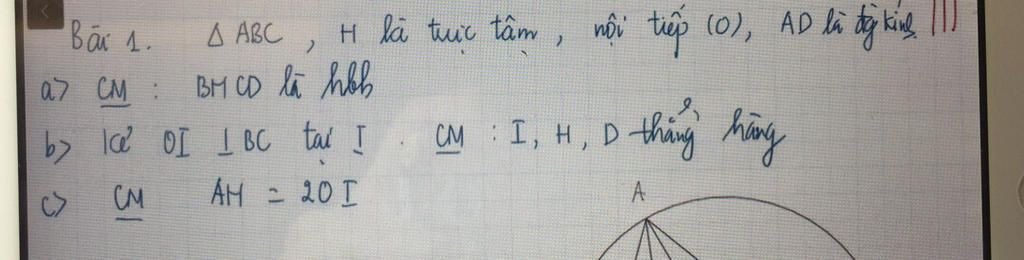 Bài 1. Δ ABC, H là trực tâm, nội tiếp (O), AD là đg kính.
a> CM : BHCD là hbh
b> Kẻ OI ⊥ BC tại I. CM : I, H, D thẳng hàng
c> CM AH = 2OI
A